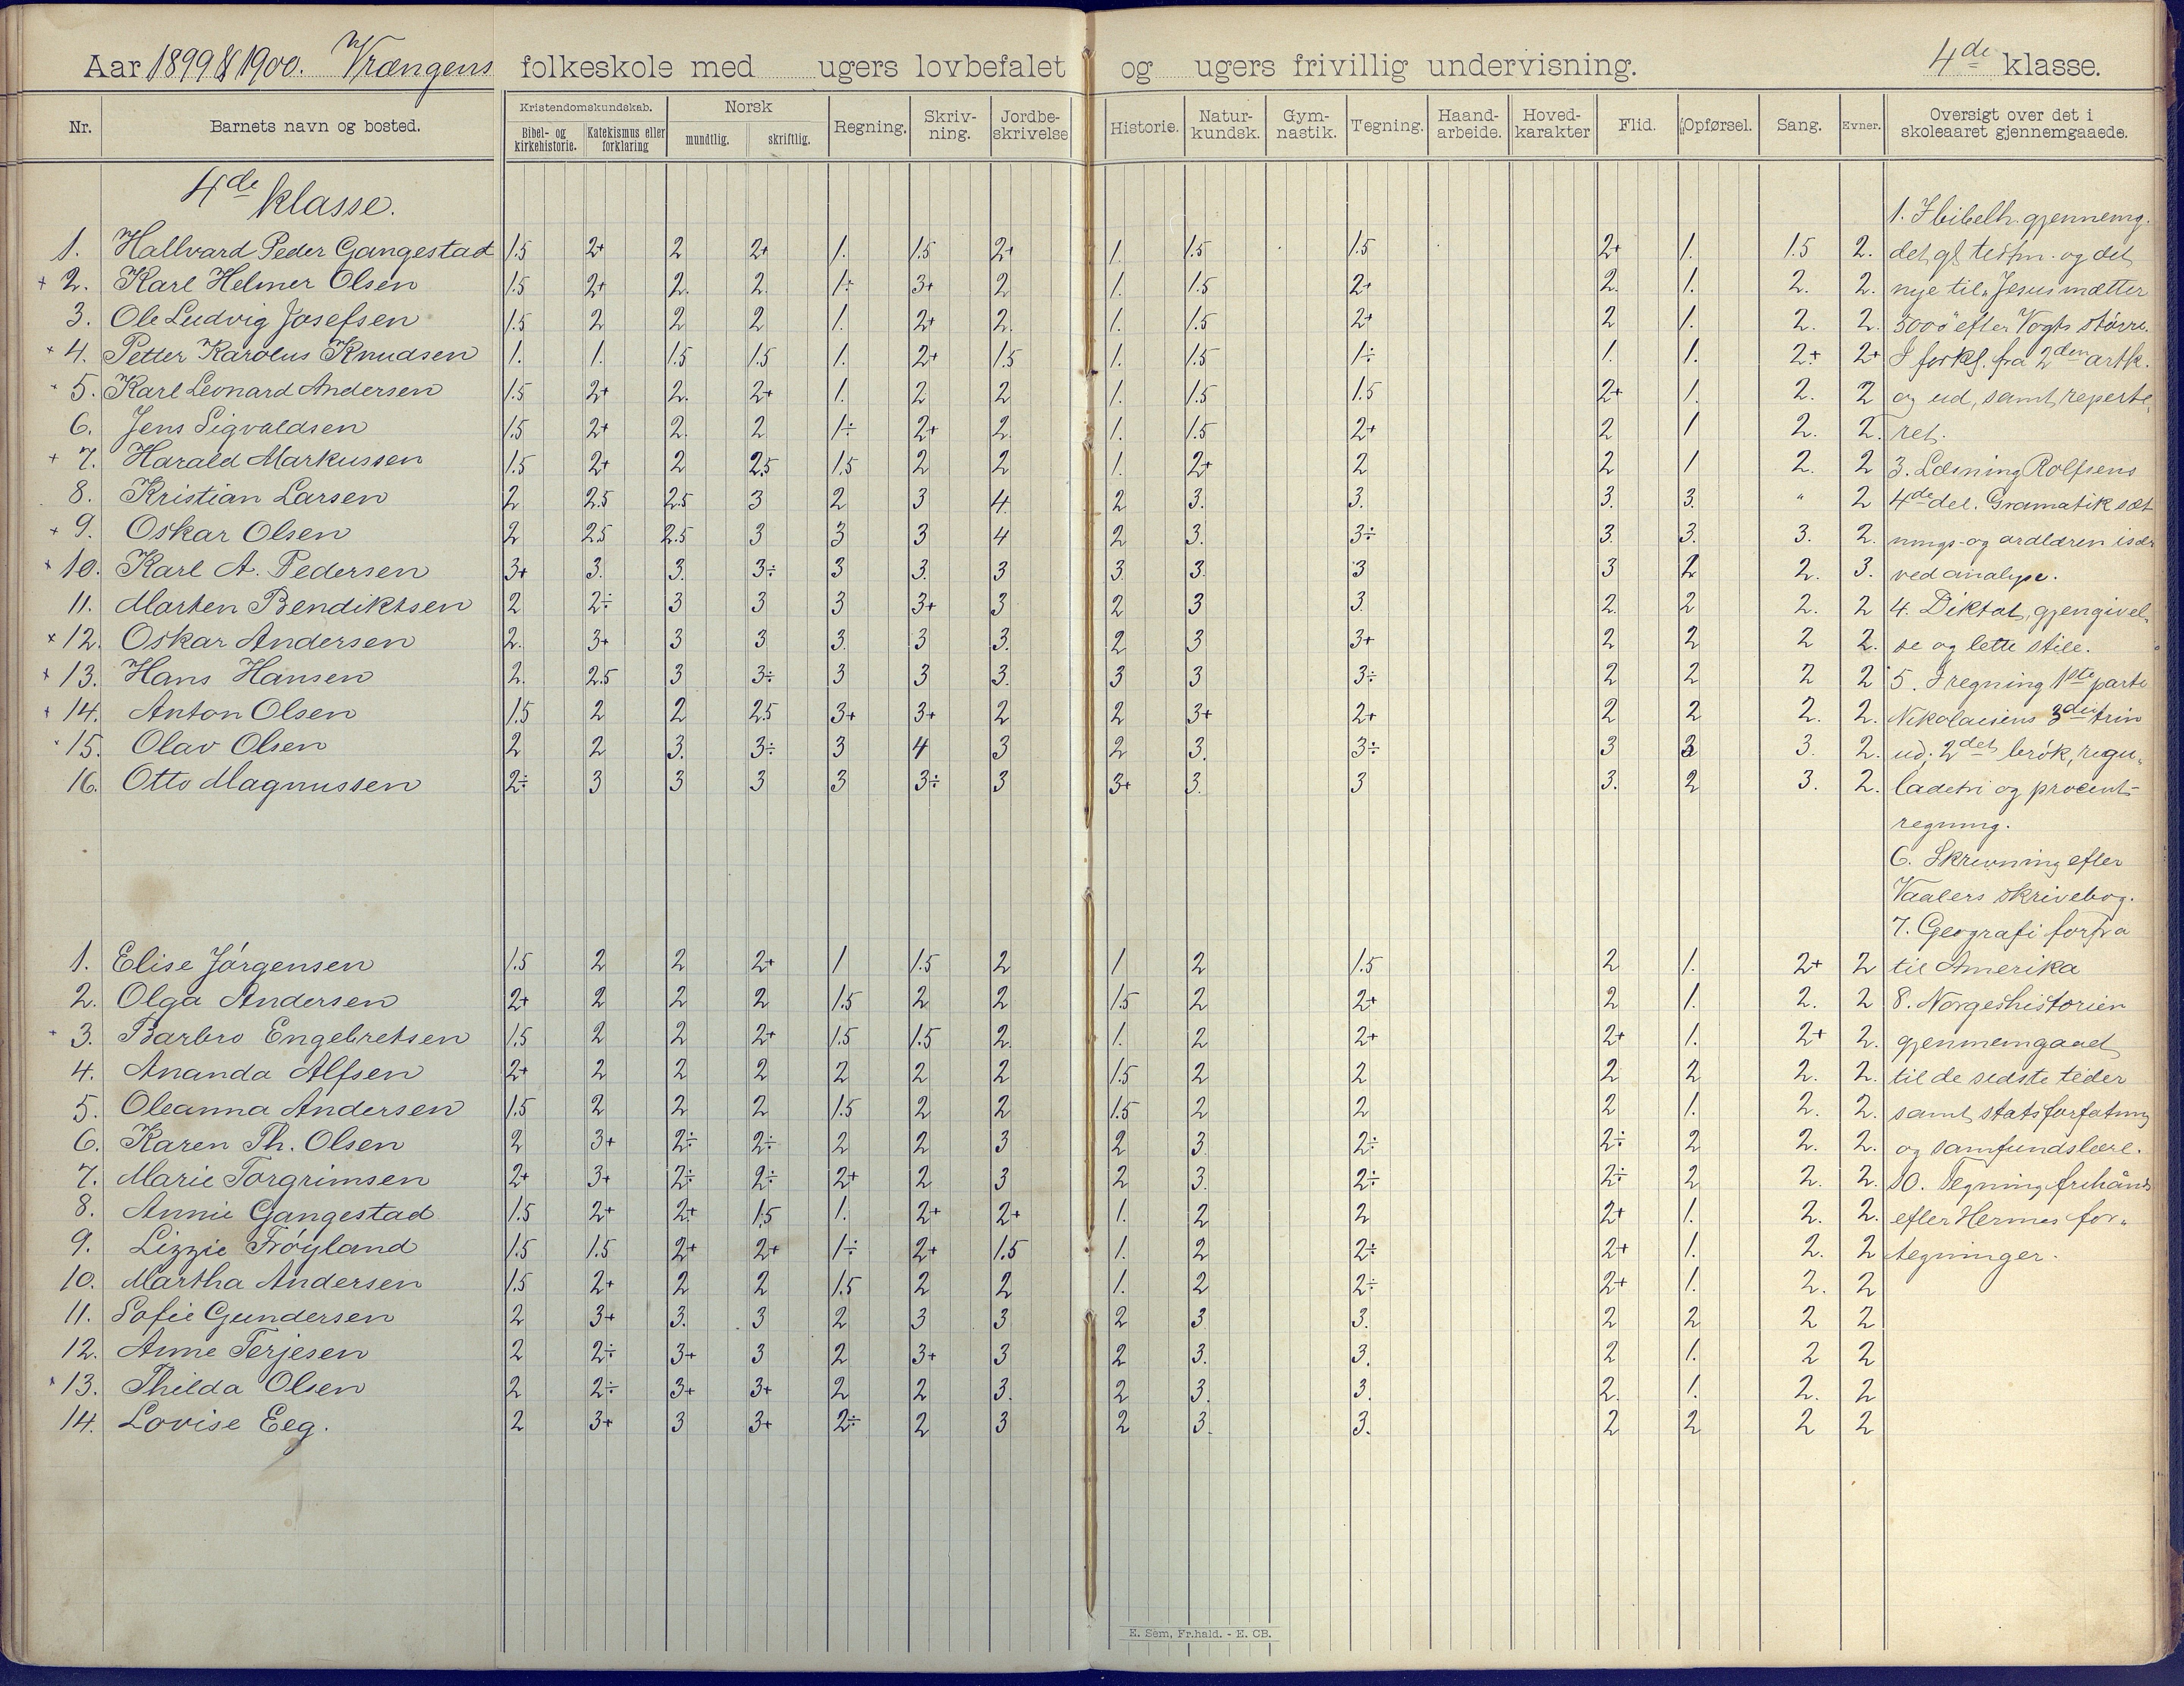 Aar 1899 & 1900. Vrængens folkeskole med ugers lovbefalet og ugers frivillig undervisning. 4de klasse.
Nr. Barnets navn og bosted. Kristendomskundskab. Bibel- og kirkehistorie. Katekismus eller forklaring Norsk mundtlig. skriftlig. Regning. Skriv-ning. Jordbe-skrivelse Historie. Natur-kundsk. Gym-nastik. Tegning. Haand-arbeide. Hoved-karakter Flid. Opførsel. Sang. Evner. Oversigt over det i skoleaaret gjennemgaaede.
4de klasse.
1. I bibelh. gjennemg.
1. Hallvard Peder Gangestad 1.5 2+ 2 2+ 1. 1.5 2+ 1. 1.5 1.5 2+ 1. 1.5 2. det gl. testm. og det
+ 2. Karl Helmer Olsen 1.5 2+ 2. 2. 1÷ 3+ 2 1. 1.5 2+ 2. 1. 2. 2. nye til "Jesus mætter
3. Ole Ludvig Josefsen 1.5 2 2 2 1. 2+ 2. 1. 1.5 2+ 2 1. 2. 2. 5000" efter Vogts større.
+ 4. Petter Karolus Knudsen 1. 1. 1.5 1.5 1. 2+ 1.5 1. 1.5 1÷ 1. 1. 2+ 2+ I forkl. fra 2den artk.
+ 5. Karl Leonard Andersen 1.5 2+ 2. 2+ 1. 2 2 1. 1.5 1.5 2+ 1. 2. 2 og ud, samt reperte,
6. Jens Sigvaldsen 1.5 2+ 2. 2 1÷ 2+ 2. 1. 1.5 2+ 2 1 2. 2. ret.
+ 7. Harald Markussen 1.5 2+ 2 2.5 1.5 2 2 1. 2+ 2 2 1 2. 2 3. Læsning Rolfsens
8. Kristian Larsen 2 2.5 2.5 3 2 3 4. 2 3. 3. 3. 3. " 2 4de del. Gramatik sæt
+ 9. Oskar Olsen 2 2.5 2.5 3 3 3 4 2 3. 3÷ 3. 3. 3. 2. nings- og ordlæren især
+ 10. Karl A. Pedersen 3+ 3. 3. 3÷ 3 3. 3 3 3. 3 3 2 2. 3. ved analyse.
11. Marten Bendiktsen 2 2÷ 3 3 3 3+ 3 2 3 3. 2. 2 2. 2 4. Diktat, gjengivel„
× 12. Oskar Andersen 2. 3+ 3 3 3. 3 3. 2 3 3+ 2 2 2 2. se og lette stile.
+ 13. Hans Hansen 2. 2.5 3 3÷ 3 3 3. 3 3 3÷ 2 2 2 2 5. I regning 1ste parti
+ 14. Anton Olsen 1.5 2 2 2.5 3+ 3+ 2 2 3+ 2+ 2 2 2. 2. Nikolaisens 3die trin
+ 15. Olav Olsen 2 2 3. 3÷ 3 4 3 2 3. 3÷ 3 3 3. 2. ud; 2det brøk, regu„
16. Otto Magnussen 2÷ 3 3 3 3 3÷ 3 3+ 3. 3 3. 2 3. 2. ladetri og procent-
regning.
6. Skrivning efter
Vaalers skrivebog.
7. Geografi forfra
1. Elise Jørgensen 1.5 2 2 2+ 1 1.5 2 1 2 1.5 2 1. 2+ 2 til Amerika
2. Olga Andersen 2+ 2 2 2 1.5 2 2 1.5 2 2+ 2 1. 2. 2 8. Norgeshistorien
+ 3. Barbro Engebretsen 1.5 2 2 2+ 1.5 1.5 2. 1. 2 2+ 2+ 1. 2+ 2. gjennemgaaet
4. Ananda Alfsen 2+ 2 2 2 2 2 2 1.5 2 2 2 2 2. 2. til de sidste tider
5. Oleanna Andersen 1.5 2 2 2 1.5 2 2 1.5 2 2 2 1. 2. 2. samt statsforfatning
6. Karen Th. Olsen 2 3+ 2÷ 2÷ 2 2 3 2 3. 2÷ 2÷ 2 2. 2. og samfundslære.
7. Marie Torgrimsen 2+ 3+ 2÷ 2÷ 2+ 2 3 2 3. 2÷ 2÷ 2 2. 2. 10. Tegning frihånds
8. Annie Gangestad 1.5 2+ 2+ 1.5 1. 2+ 2+ 1. 2 2 2+ 1. 2. 2. efter Hermes for„
9. Lizzie Frøyland 1.5 1.5 2+ 2+ 1÷ 2+ 1.5 1. 2 2÷ 2+ 1. 2. 2 tegninger.
10. Martha Andersen 1.5 2+ 2 2 1.5 2 2 1. 2 2÷ 2+ 1. 2. 2
11. Sofie Gundersen 2 3+ 3. 3 2 3 3 2 3 3. 2 2 2 2
12. Anne Terjesen 2 2÷ 3+ 3 2 3+ 3 2 3. 3. 2 1. 2 2
+ 13. Thilda Olsen 2 2÷ 3+ 3+ 2 2 3. 2 3. 3. 2. 1. 2. 2
14. Lovise Eeg. 2 3+ 3 3+ 2÷ 2 3 2 3. 3. 2 2 2 2
E. Sem, Fr.hald. - E. CB.